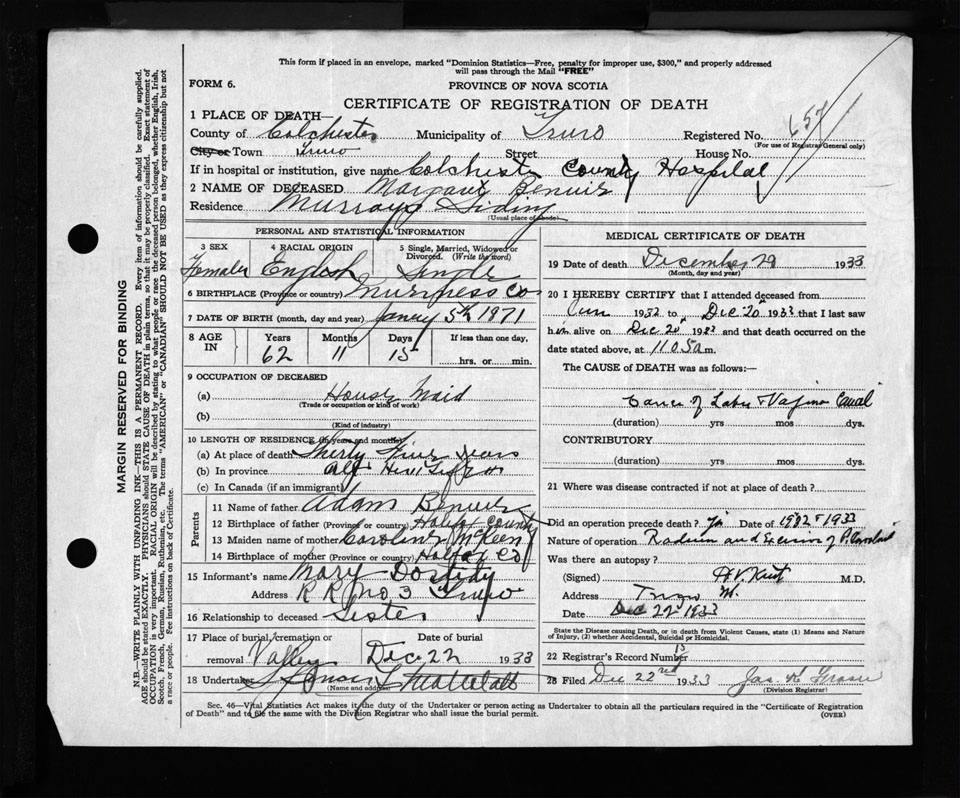 This form if placed in an envelope, marked "Dominion Statistics—Free, penalty for improper use, $300," and properly addressed
will pass through the Mail "FREE"
FORM 6.
PROVINCE OF NOVA SCOTIA
CERTIFICATE OF REGISTRATION OF DEATH
1 PLACE OF DEATH—
County of Colchester Municipality of Truro Registered No. 657
(For use of Registrar General only)
City or Town Truro Street House No.
If in hospital or institution, give name Colchester County Hospital
2 NAME OF DECEASED Margaret
Residence Murrays Siding
(Usual place of abode)
PERSONAL AND STATISTICAL INFORMATION
3 SEX 4 RACIAL ORIGIN 5 Single, Married, Widowed or Divorced. (Write the word)
Female English Single
6 BIRTHPLACE (Province or country) Co
7 DATE OF BIRTH (month, day and year) 5th 1971
8 AGE IN Years Months Days If less than one day,
62 11 15 hrs. or min.
9 OCCUPATION OF DECEASED
(a) House Maid
(Trade or occupation or kind of work)
(b)
(Kind of industry)
10 LENGTH OF RESIDENCE (in years and months)
(a) At place of death Thirty Five years
(b) In province
(c) In Canada (if an immigrant)
Parents
11 Name of father Adam
12 Birthplace of father (Province or country) County
13 Maiden name of mother Caroline McKeen
14 Birthplace of mother (Province or country) Co
15 Informant's name Mary
Address R R No 3 Truro
16 Relationship to deceased Sister
17 Place of burial, cremation or removal Valley Date of burial Dec 22 1933
18 Undertaker
(Name and address)
MEDICAL CERTIFICATE OF DEATH
19 Date of death December 1933
(Month, day and year)
20 I HEREBY CERTIFY that I attended deceased from
1932 to Dec 20 1933 that I last saw
h alive on Dec 20 and that death occurred on the
date stated above, at 11 05 a m.
The CAUSE of DEATH was as follows:—
Cancer of Labia & Vagina Canal
(duration) yrs mos dys.
CONTRIBUTORY
(duration) yrs mos dys.
21 Where was disease contracted if not at place of death?
Did an operation precede death? Date of 1932 & 1933
Nature of operation Radium and Excision of
Was there an autopsy?
(Signed) M.D.
Address Truro
Date Dec 22 1933
State the Disease causing Death, or in death from Violent Causes, state (1) Means and Nature
of Injury, (2) whether Accidental, Suicidal or Homicidal.
22 Registrar's Record Number
28 Filed Dec 22nd 1933 Jas. K.
(Division Registrar)
Sec. 46—Vital Statistics Act makes it the duty of the Undertaker or person acting as Undertaker to obtain all the particulars required in the "Certificate of Registration
of Death" and to file the same with the Division Registrar who shall issue the burial permit.
(OVER)
MARGIN RESERVED FOR BINDING
N.B.—WRITE PLAINLY WITH UNFADING INK—THIS IS A PERMANENT RECORD. Every item of information should be carefully supplied.
AGE should be stated EXACTLY. PHYSICIANS should STATE CAUSE OF DEATH in plain terms, so that it may be properly classified. Exact statement of
OCCUPATION is very important. RACIAL ORIGIN will be described by stating to what people or race the deceased person belonged, whether English, Irish,
Scotch, French, German, Russian, Ruthenian, etc. The terms "AMERICAN" or "CANADIAN" SHOULD NOT BE USED as they express citizenship but not
a race or people. Fee instructions on back of Certificate.